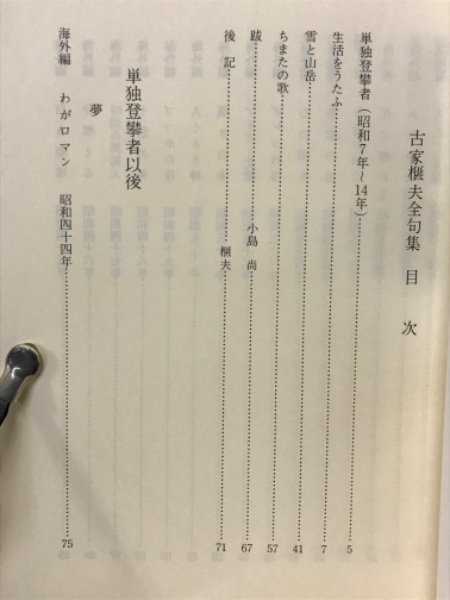 古家榧夫全句集 目次
単独登攀者（昭和7年〜14年）……5
生活をうたふ……7
雪と山岳……41
ちまたの歌……57
跋……小島 尚……67
後記……榧夫……71
単独登攀者以後
夢
海外編 わがロマン 昭和四十四年……75